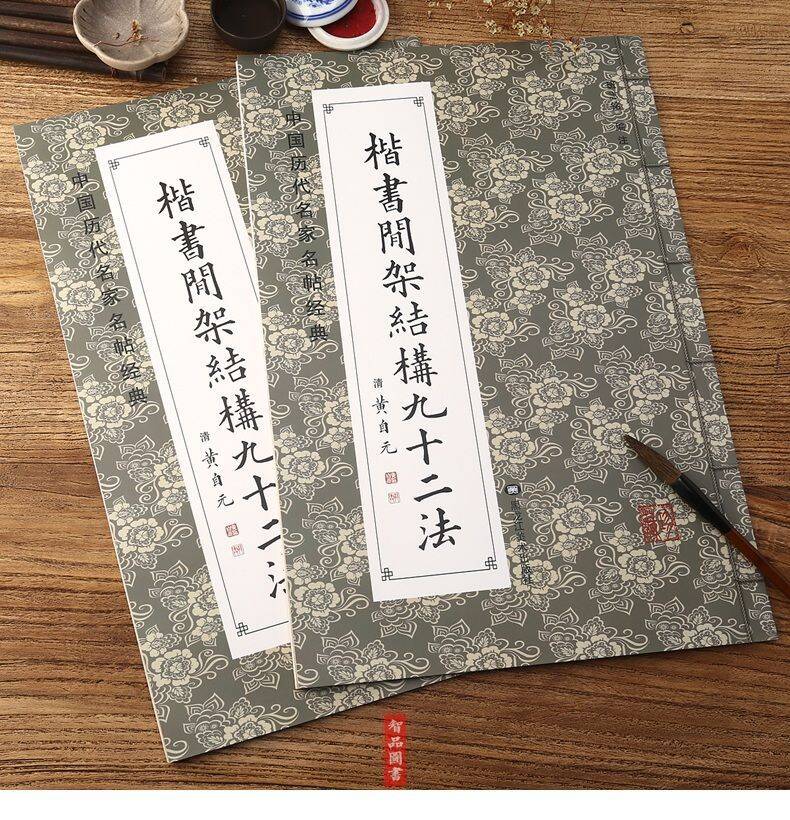 中国历代名家名帖经典
楷書間架結構九十二法
清 黄自元
黑龙江美术出版社
中国历代名家名帖经典
楷書間架結構九十二法
清 黄自元
智品圖書